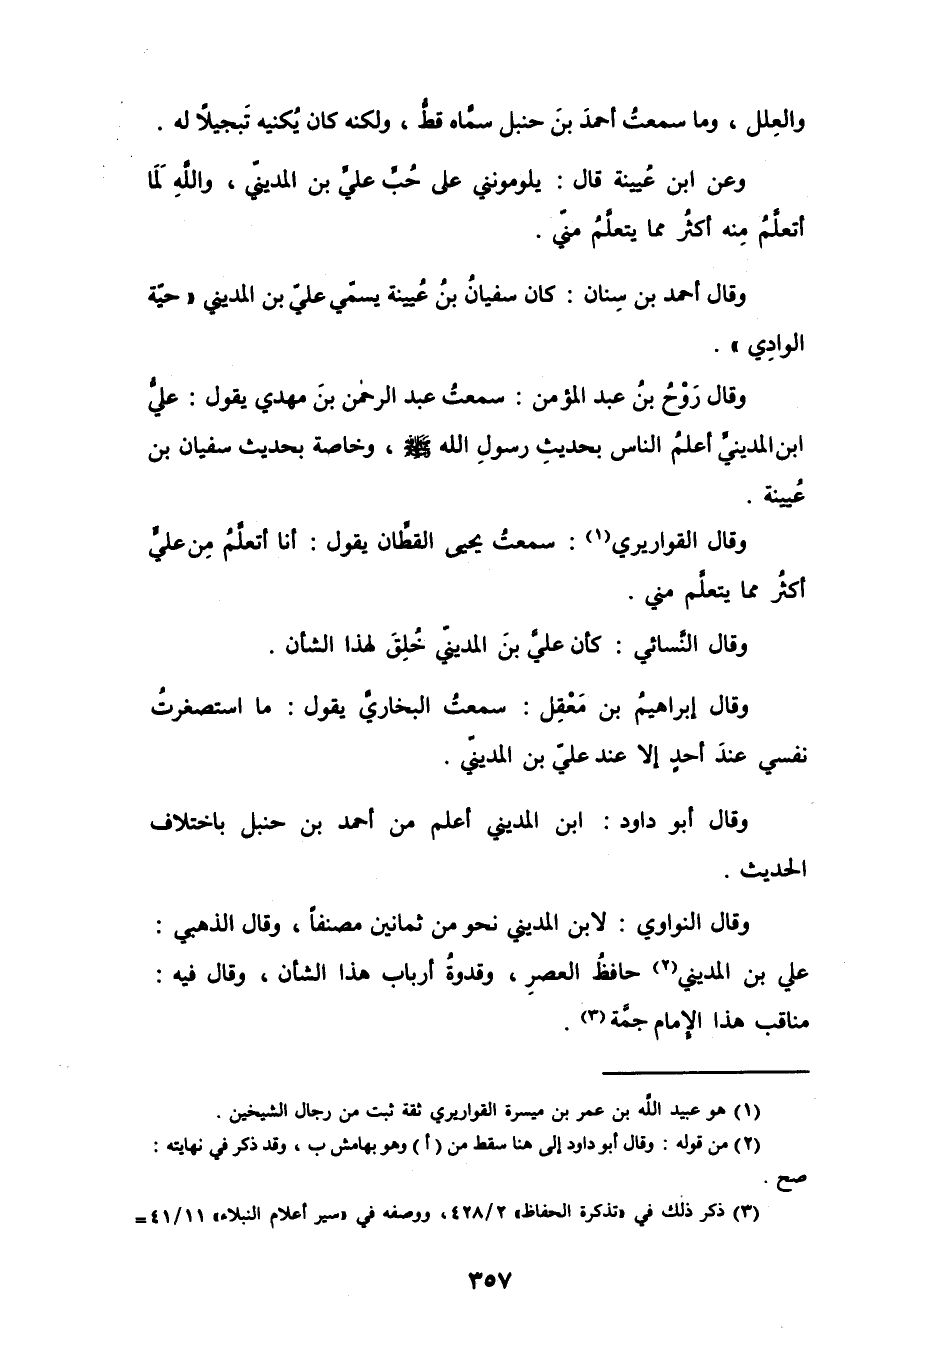 والعِلل ، وما سمعتُ أحمدَ بنَ حنبل سمَّاه قطُّ ، ولكنه كان يُكنيه تَبجيلًا له .
وعن ابن عُيينة قال : يلومونني على حُبِّ عليِّ بن المدينيّ ، واللَّهِ لَمَا
أتعلَّمُ مِنه أكثرُ مما يتعلَّمُ منيّ .
وقال أحمد بن سِنان : كان سفيانُ بنُ عُيينة يسمّي عليّ بن المديني « حيّة
الوادِي » .
وقال رَوْحُ بنُ عبد المؤمن : سمعتُ عبد الرحمٰن بنَ مهدي يقول : عليُّ
ابن المدينيِّ أعلمُ الناس بحديثِ رسولِ الله ﷺ ، وخاصة بحديث سفيان بن
عُيينة .
وقال القواريري(١) : سمعتُ يحيى القطَّان يقول : أنا أتعلَّمُ مِن عليٍّ
أكثرُ مما يتعلَّم مني .
وقال النَّسائي : كأن عليَّ بنَ المدينيّ خُلِقَ لهذا الشأن .
وقال إبراهيمُ بن مَعْقِل : سمعتُ البخاريَّ يقول : ما استصغرتُ
نفسي عندَ أحدٍ إلا عند عليّ بن المدينيّ .
وقال أبو داود : ابن المديني أعلم من أحمد بن حنبل باختلاف
الحديث .
وقال النواوي : لابن المديني نحو من ثمانين مصنفاً ، وقال الذهبي :
علي بن المديني(٢) حافظُ العصرِ ، وقدوةُ أرباب هذا الشأن ، وقال فيه :
مناقب هذا الإمام جمَّة(٣) .
(١) هو عبيد اللَّه بن عمر بن ميسرة القواريري ثقة ثبت من رجال الشيخين .
(٢) من قوله : وقال أبو داود إلى هنا سقط من ( أ ) وهو بهامش ب ، وقد ذكر في نهايته :
صح .
(٣) ذكر ذلك في «تذكرة الحفاظ» ٤٢٨/٢، ووصفه في «سير أعلام النبلاء» ٤١/١١=
٣٥٧